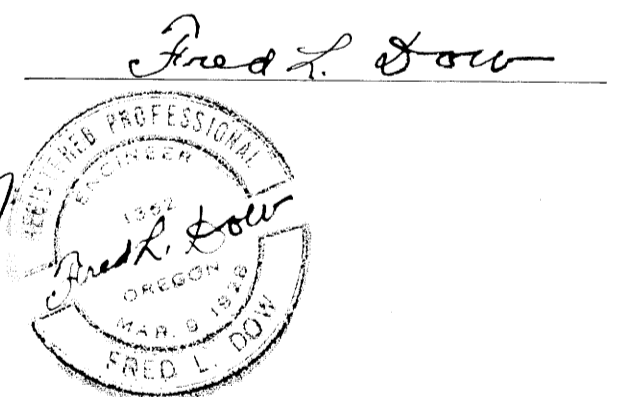 Fred L. Dow
REGISTERED PROFESSIONAL
ENGINEER
1352
Fred L. Dow
OREGON
MAR. 9 1928
FRED L. DOW